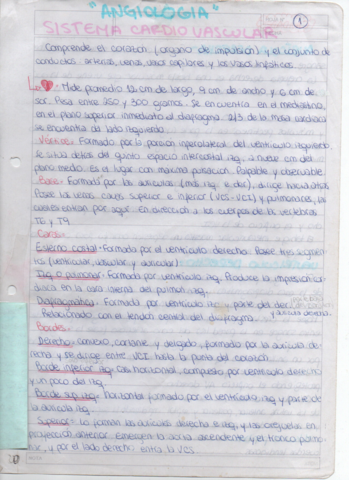 "ANGIOLOGIA"
1
SISTEMA CARDIOVASCULAR
Comprende el corazón (órgano de impulsión) y el conjunto de
conductos: arterias, venas, vasos capilares y los vasos linfáticos.
Mide promedio 12 cm de largo, 9 cm de ancho y 6 cm de
Pesa entre 250 y 300 gramos. Se encuentra en el mediastino,
en el plano superior inmediato al diafragma. 2/3 de la masa cardiaca
se encuentra al lado izquierdo
Vértice: Formado por la porción inferolateral del ventrículo izquierdo
se sitúa detrás del quinto espacio intercostal izq, a nueve cm del
plano medio. Es el lugar con máxima pulsación. Palpable y observable.
Base: Formada por las aurículas (más izq q der), dirige hacia atrás
Posee las venas cavas superior e inferior (VCS-VCI) y pulmonares, las
cuales entran por aquí en dirección a los cuerpos de las vertebras
T6 y T9.
Caras:
Esterno costal: Formada por el ventrículo derecho. Posee tres
(ventricular, vascular y auricular)
Izq o pulmonar: Formada por ventrículo izq. Produce la impresión
en la cara interna del pulmón izq.
Diafragmática: Formada por ventrículo izq y parte del der
Relacionado con el tendón central del diafragma y aurícula derecha.
Bordes:
Derecho: convexo, cortante y delgado, formado por la aurícula de-
recha y se dirige entre VCI hasta la punta del corazón
Borde inferior: Casi horizontal, compuesto por ventrículo derecho
y un poco del izq.
Borde sup izq: Horizontal formado por el ventrículo izq y parte de
la aurícula izq.
Superior: Lo forman las aurículas derecha e izq, y las orejuelas en
proyección anterior. Emergen la aorta ascendente y el tronco pulmo-
nar, y por el lado derecho entra la VCS